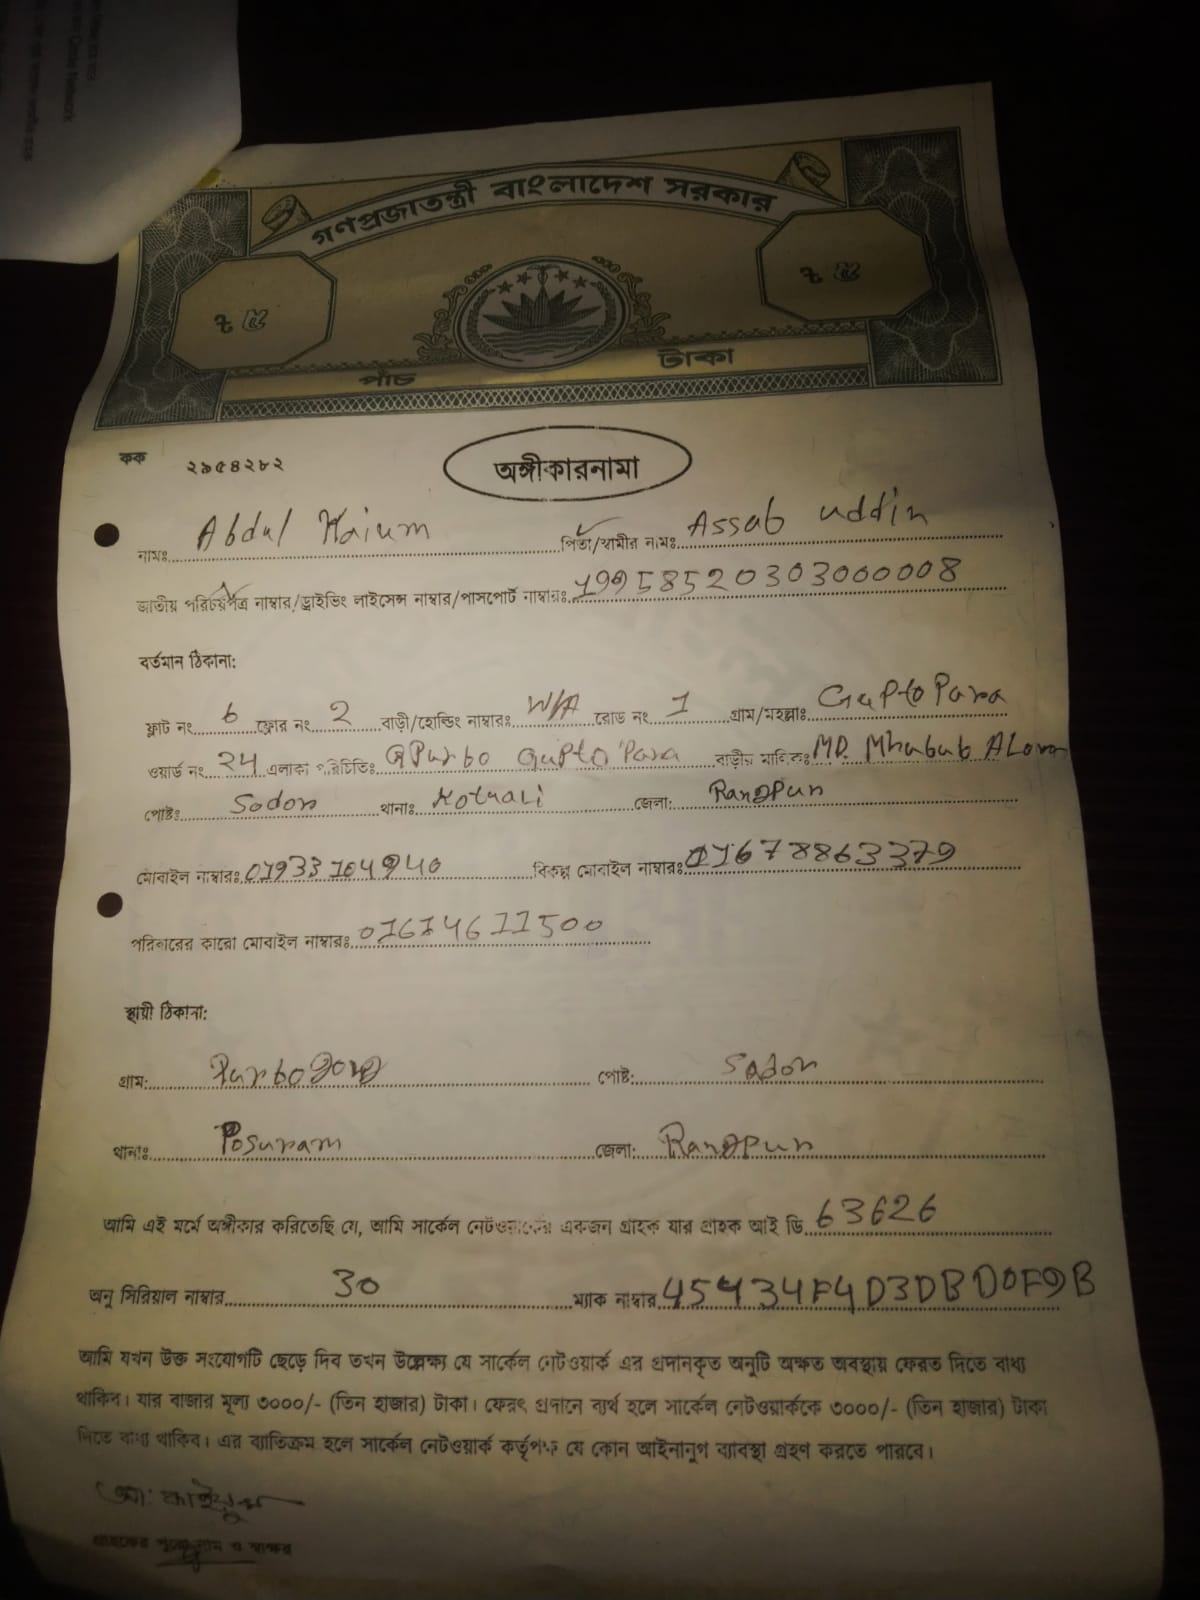 গণপ্রজাতন্ত্রী বাংলাদেশ সরকার
৳ ৫
৳ ৫
পাঁচ টাকা
কক ২৯৫৪২৮২
অঙ্গীকারনামা
নামঃ Abdul Kaium পিতা/স্বামীর নামঃ Assab uddin
জাতীয় পরিচয়পত্র নাম্বার/ড্রাইভিং লাইসেন্স নাম্বার/পাসপোর্ট নাম্বারঃ 19958520303000008
বর্তমান ঠিকানা:
ফ্লাট নং 6 ফ্লোর নং 2 বাড়ী/হোল্ডিং নাম্বারঃ N/A রোড নং 1 গ্রাম/মহল্লাঃ Gupto Para
ওয়ার্ড নং 24 এলাকা পরিচিতিঃ Purbo Gupto Para বাড়ীর মালিকঃ MD. Mhabub ALam
পোষ্টঃ Sador থানাঃ Kotuali জেলা: Rangpur
মোবাইল নাম্বারঃ 01933104940 বিকল্প মোবাইল নাম্বারঃ 01678863379
পরিবারের কারো মোবাইল নাম্বারঃ 01614611500
স্থায়ী ঠিকানা:
গ্রাম: পোষ্ট: Sador
থানাঃ Posuram জেলা: Rangpur
আমি এই মর্মে অঙ্গীকার করিতেছি যে, আমি সার্কেল নেটওয়ার্কের একজন গ্রাহক যার গ্রাহক আই ডি 63626
অনু সিরিয়াল নাম্বার 30 ম্যাক নাম্বার 45434F4D3DBD0F9B
আমি যখন উক্ত সংযোগটি ছেড়ে দিব তখন উল্লেক্ষ্য যে সার্কেল নেটওয়ার্ক এর প্রদানকৃত অনুটি অক্ষত অবস্থায় ফেরত দিতে বাধ্য
থাকিব। যার বাজার মূল্য ৩০০০/- (তিন হাজার) টাকা। ফেরৎ প্রদানে ব্যর্থ হলে সার্কেল নেটওয়ার্ককে ৩০০০/- (তিন হাজার) টাকা
দিতে বাধ্য থাকিব। এর ব্যতিক্রম হলে সার্কেল নেটওয়ার্ক কর্তৃপক্ষ যে কোন আইনানুগ ব্যাবস্থা গ্রহণ করতে পারবে।
আ: কাইয়ুম
গ্রাহকের পুরো নাম ও স্বাক্ষর